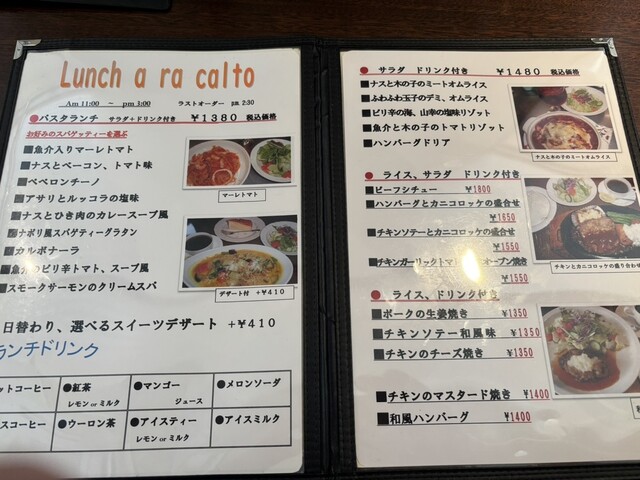 Lunch a ra calto
Am 11:00 ~ pm 3:00 ラストオーダー pm 2:30
●パスタランチ サラダ+ドリンク付き ¥1380 税込価格
お好みのスパゲティーを選ぶ
■魚介入りマーレトマト
■ナスとベーコン、トマト味
■ペペロンチーノ
■アサリとルッコラの塩味
■ナスとひき肉のカレースープ風
■ナポリ風スパゲティーグラタン
■カルボナーラ
■魚介のピリ辛トマト、スープ風
■スモークサーモンのクリームスパ
マーレトマト
デザート付 +¥410
日替わり、選べるスイーツデザート +¥410
ランチドリンク
ットコーヒー
●紅茶
レモン or ミルク
●マンゴー
ジュース
●メロンソーダ
スコーヒー
●ウーロン茶
●アイスティー
レモン or ミルク
●アイスミルク
● サラダ ドリンク付き ¥1480 税込価格
■ナスと木の子のミートオムライス
■ふわふわ玉子のデミ、オムライス
■ピリ辛の海、山幸の塩味リゾット
■魚介と木の子のトマトリゾット
■ハンバーグドリア
ナスと木の子のミートオムライス
● ライス、サラダ ドリンク付き
■ビーフシチュー ¥1800
■ハンバーグとカニコロッケの盛合せ
¥1650
■チキンソテーとカニコロッケの盛合せ
¥1550
■チキンガーリックトマト オーブン焼き
¥1550
チキンとカニコロッケの盛り合わせ
● ライス、ドリンク付き
■ポークの生姜焼き ¥1350
■チキンソテー和風味 ¥1350
■チキンのチーズ焼き ¥1350
■チキンのマスタード焼き ¥1400
■和風ハンバーグ ¥1400